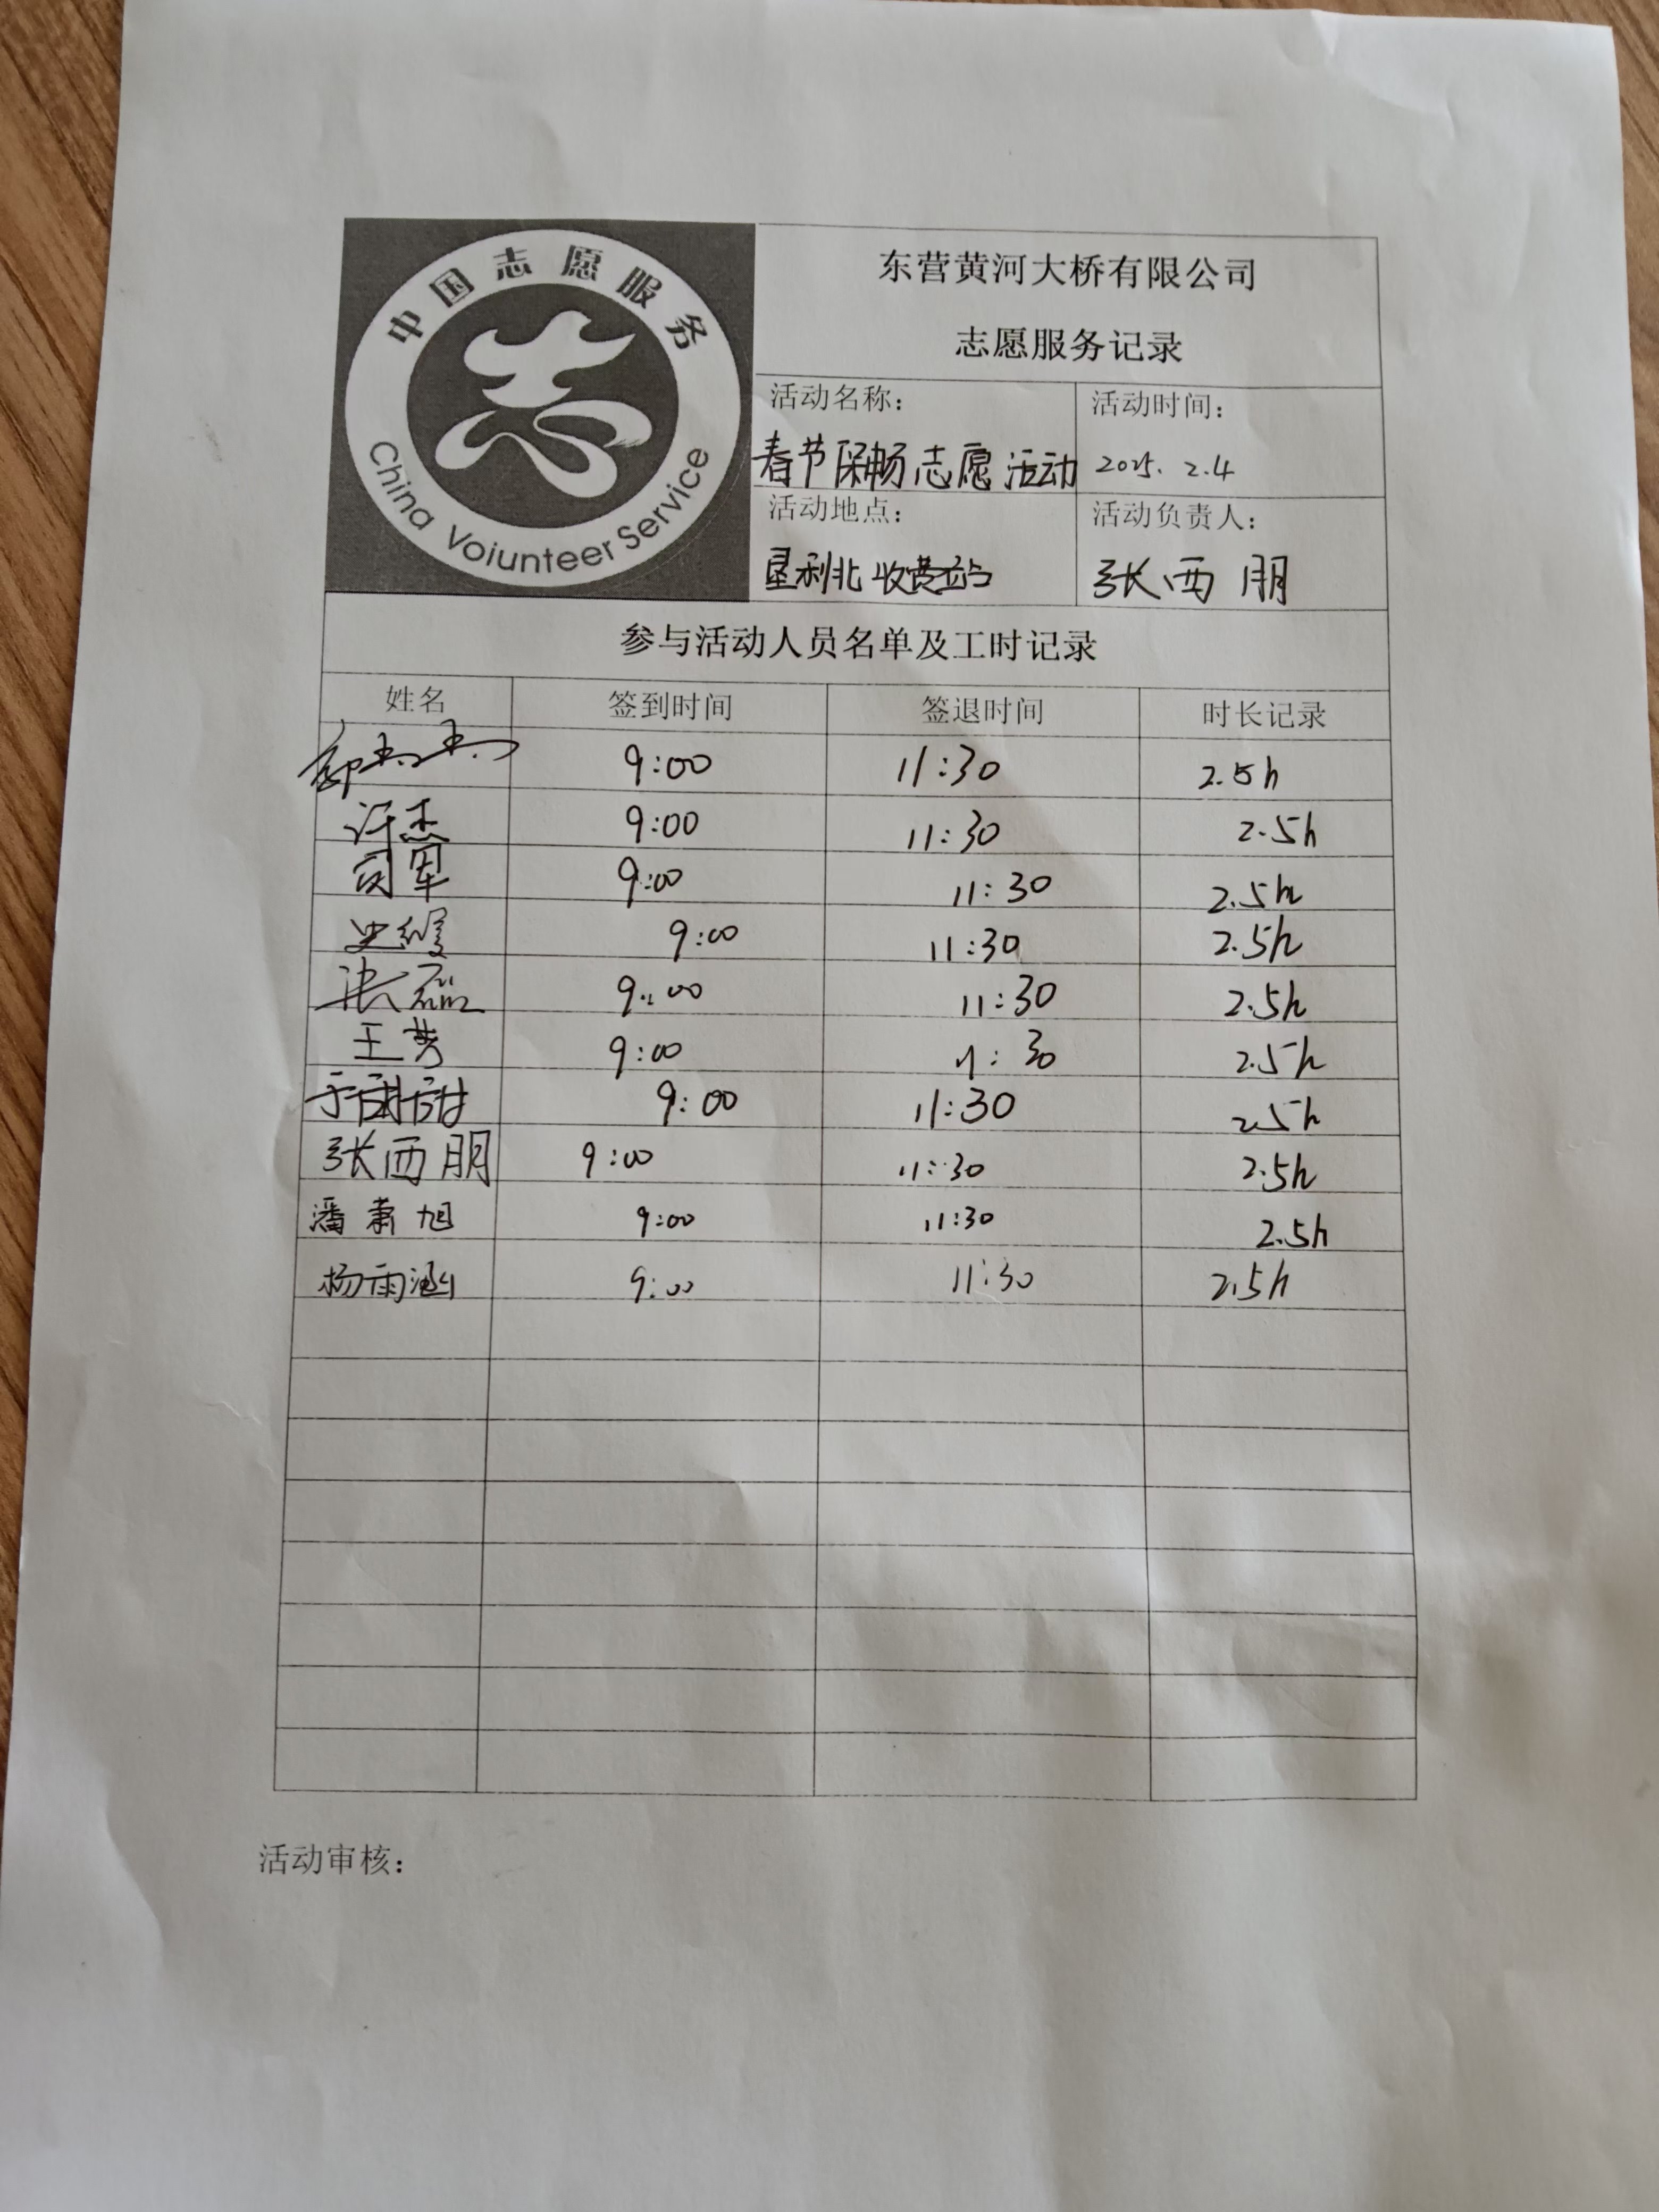 中国志愿服务
China Voiunteer Service
东营黄河大桥有限公司
志愿服务记录
活动名称： 活动时间：
春节保畅志愿活动 2025. 2.4
活动地点： 活动负责人：
垦利北收费站 张西朋
参与活动人员名单及工时记录
姓名 签到时间 签退时间 时长记录
9:00 11:30 2.5h
许杰 9:00 11:30 2.5h
司军 9:00 11:30 2.5h
9:00 11:30 2.5h
张磊 9:00 11:30 2.5h
王芳 9:00 11:30 2.5h
于甜甜 9:00 11:30 2.5h
张西朋 9:00 11:30 2.5h
潘萧旭 9:00 11:30 2.5h
杨雨涵 9:00 11:30 2.5h
活动审核：